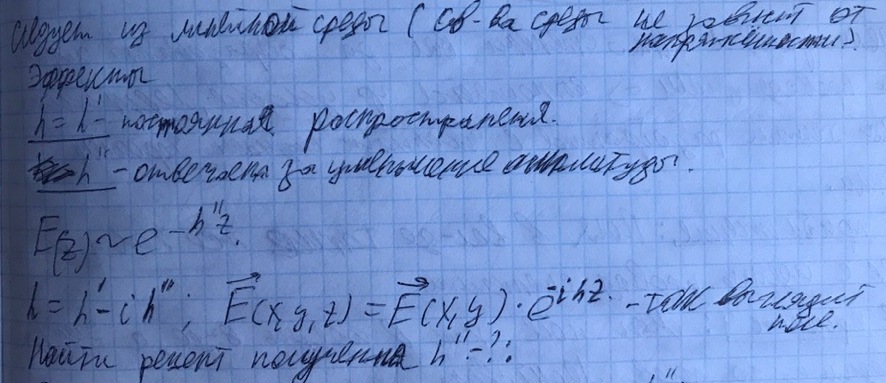 следует из линейной среды (св-ва среды не зависят от
напряженности).
Эффекты
h = h' - постоянная распространения.
h'' - отвечает за уменьшение амплитуды.
E(z) ~ e^{-h''z}.
h = h' - i h''; \vec{E}(x,y,z) = \vec{E}(x,y) · e^{-ihz}. - так выглядит
поле.
Найти рецепт получения h'' - ?: